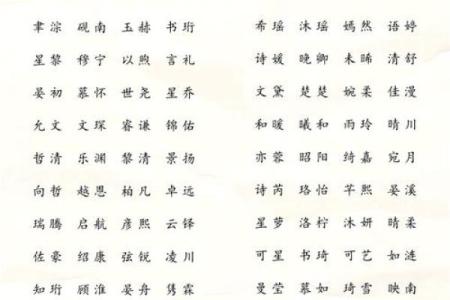 聿淙 砚南 玉赫 书珩 希瑶 沐瑶 嫣然 语婷
星黎 穆宁 以煦 言礼 诗媛 晚卿 未晞 清舒
晏初 慕怀 世尧 星乔 文黛 楚楚 婉柔 佳漫
允文 文琛 睿谦 锦佑 和暖 曦和 雨玲 晴川
哲清 乐渊 黎清 景扬 亦蓉 昭阳 绮嘉 宛月
向哲 越恩 柏凡 卓远 诗芮 珞怡 芊熙 晏溪
瑞腾 启航 彦熙 云铎 星萝 洛柠 沐妍 晴柔
佐豪 绍康 弦锐 凌川 可星 书琦 可艺 如涟
知珩 顾淮 晏舟 隽霖 曼莹 慕如 琦雪 映南